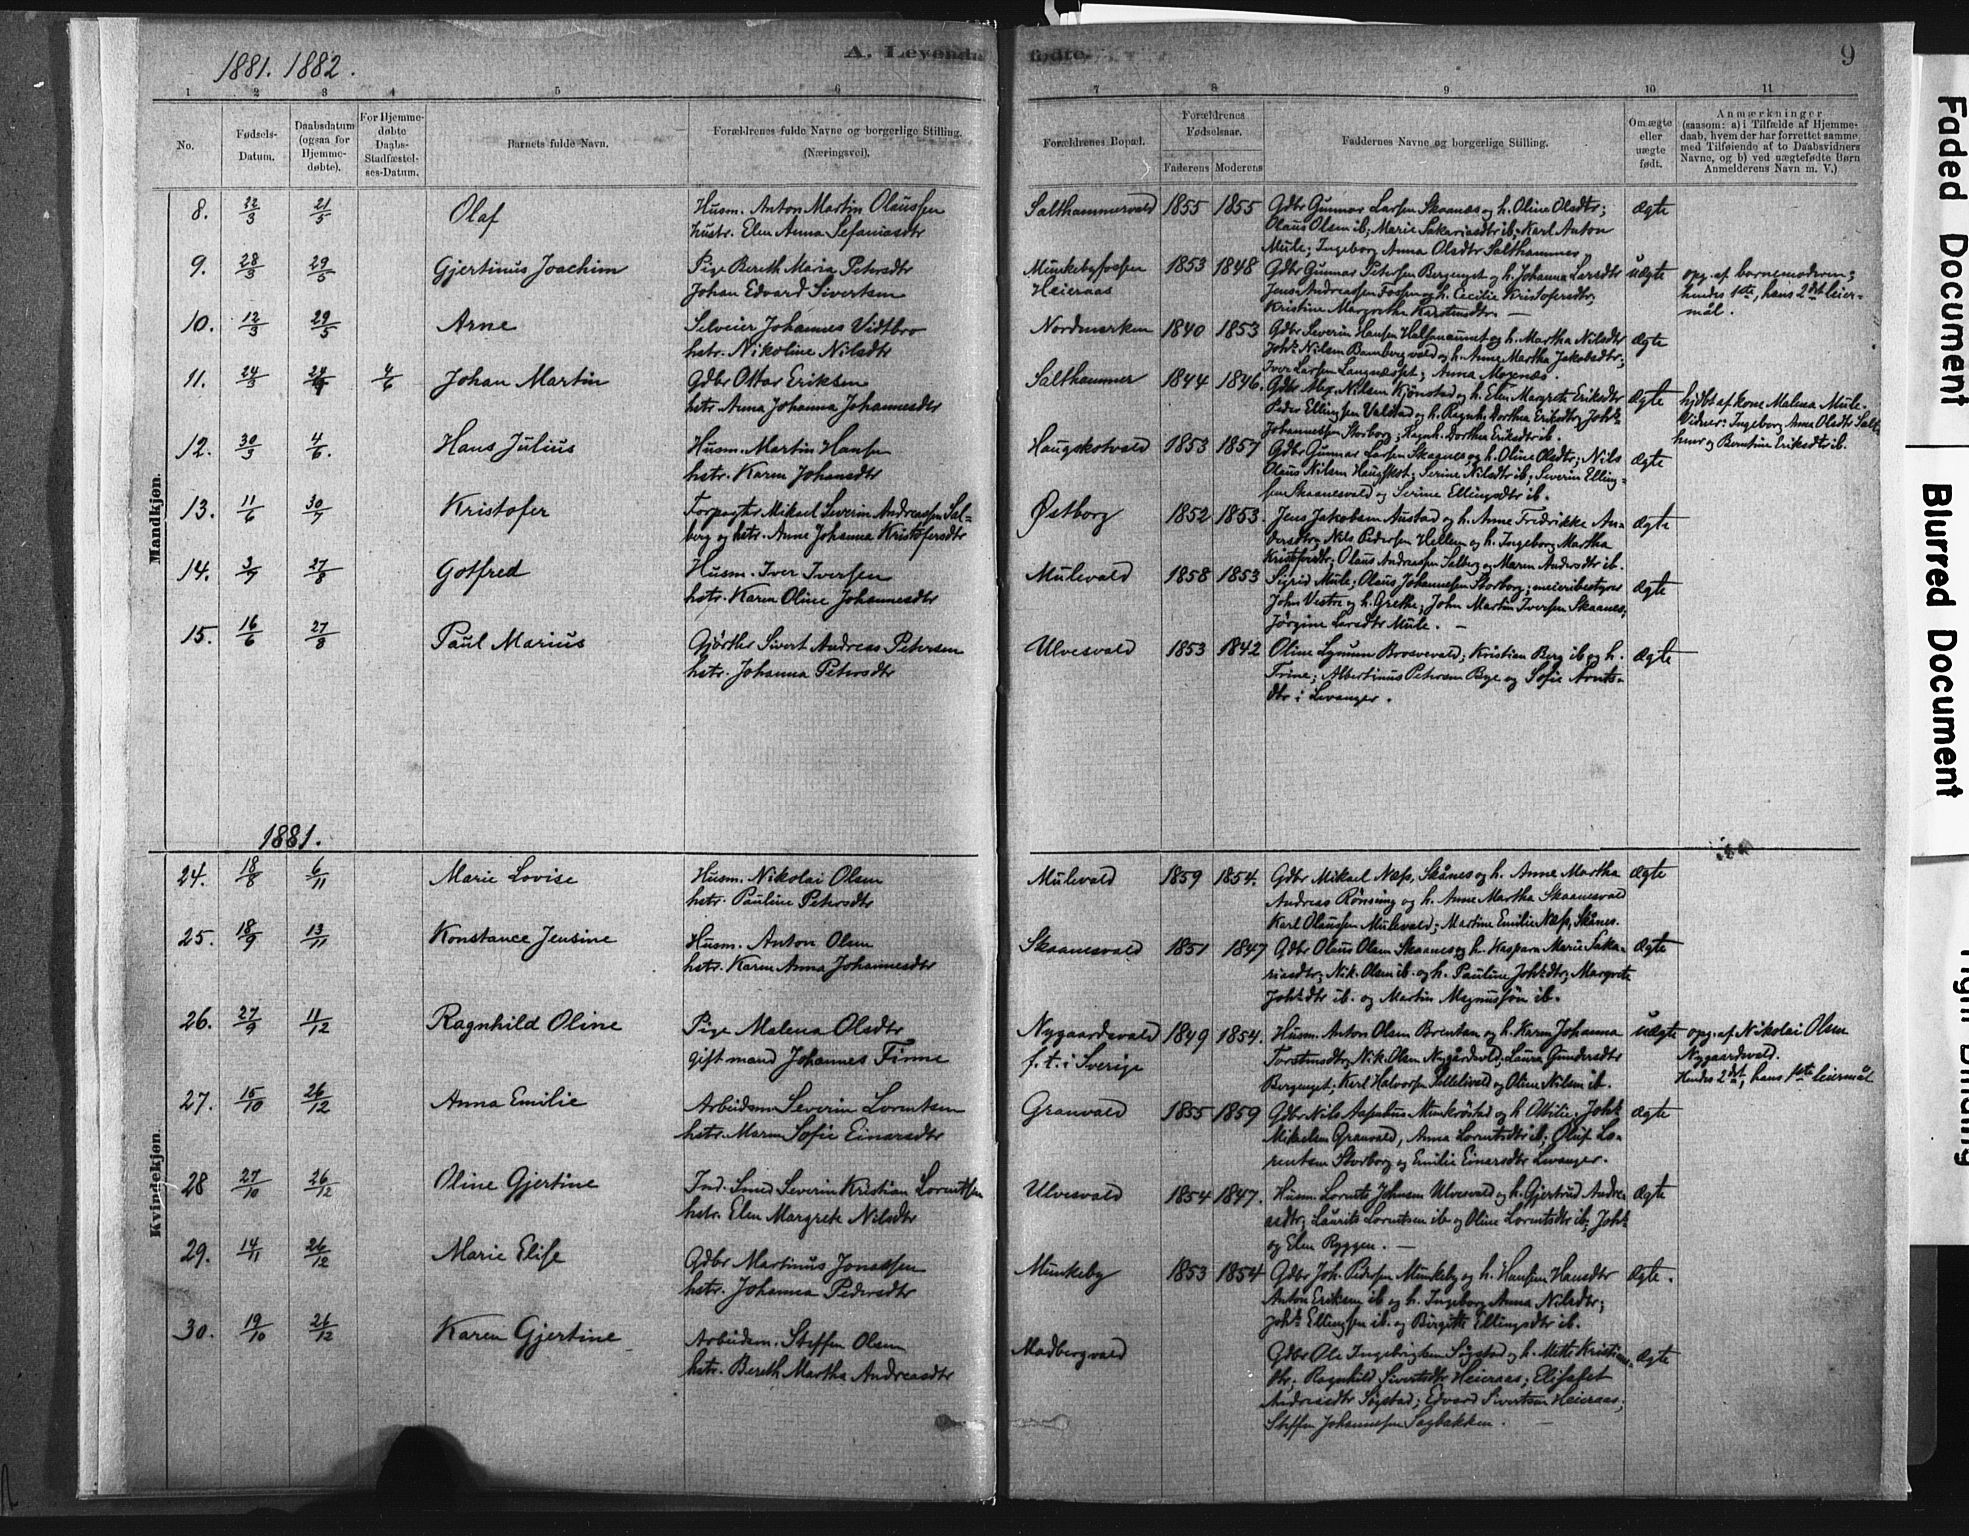 1881. 1882.
A. Levende
fødte.
9
1 2 3 4 5 6 7 8 9 10 11
No.
Fødsels-Datum.
Daabsdatum (ogsaa for Hjemmedøbte).
For Hjemmedøbte Daabs-Stadfæstelses-Datum.
Barnets fulde Navn.
Forældrenes fulde Navne og borgerlige Stilling.
(Næringsvei).
Forældrenes Bopæl.
Forældrenes Fødselsaar.
Faderens Moderens
Faddernes Navne og borgerlige Stilling.
Om ægte eller uægte født.
Anmærkninger
(saasom: a) i Tilfælde af Hjemme-
daab, hvem der har forrettet samme,
med Tilføiende af to Daabsvidners
Navne, og b) ved uægtefødte Børn
Anmelderens Navn m. V.)
Mandkjøn.
8. 22/3 21/5 Olaf
Husm. Anton Martin Olaussen
hustr. Elen Anna Sefaniasdtr
Salthammervald 1855 1855
Gdbr Gunnar Larsen Skaanes og h. Oline Olsdtr;
Olaus Olsen ib; Marie Sakariasdtr ib; Karl Anton
Mule; Ingeborg Anna Olsdtr Salthammer
Ægte
9. 28/3 29/5 Gjertinus Joachim
Pige Bereth Maria Petersdtr
Johan Edvard Sivertsen
Munkebyfossen
Heieraas
1853 1848
Gdbr Gunnar Petersen Bergenget og h. Johanna Larsdtr
Jens Andreassen Fossen og h. Cecilie Kristofersdtr;
Kristine Margrethe Karstensdtr. —
Uægte
opg. af barnemoderen;
hendes 1ste, hans 2det leier-
mål.
10. 12/3 29/5 Arne
Selveier Johannes Vidtbro
hstr. Nikoline Nilsdtr
Nordmarken 1840 1853
Gdbr Severin Hansen Halsnaustet og h. Martha Nilsdtr
Johs Nilsen Bambergvald og h. Anne Martha Jakobsdtr;
Iver Larsen Langnæsset; Anna Moxnæs.
Ægte
11. 24/3 4/6 Johan Martin
Gdbr Ottar Eriksen
hstr. Anna Johanna Johannesdtr
Salthammer 1844 1846.
Gdbr Alex. Nilsen Kjønstad og h. Elen Margrete Eriksdtr
Peder Ellingsen Valstad og h. Ragnh. Dorthea Eriksdtr; Johs
Johannessen Storborg; Ragnh. Dorthea Eriksdtr ib.
Ægte
hjdbt af kone Malena Mule.
Vidner: Ingeborg Anna Olsdtr Salt-
hmr og Berntine Eriksdtr ib.
12. 30/3 4/6. Hans Julius
Husm. Martin Hansen
hstr. Karen Johansdtr
Haugskotvald 1853 1857
Gdbr Gunnar Larsen Skaanes og h. Oline Olsdtr; Nils
Olaus Nilsen Haugskot; Serine Nilsdtr ib; Severin Elling-
sen Skaanesvald og Serine Ellingsdtr ib.
Ægte
13. 11/6 30/7 Kristofer
Forpagter Mikael Severin Andreassen Sal-
berg og hstr. Anne Johanna Kristofersdtr
Østborg 1852 1853.
Jens Jakobsen Austad og h. Anne Fredrikke An-
dersdtr; Nils Pedersen Hellem og h. Ingeborg Martha
Kristofersdtr; Olaus Andreassen Salberg og Maren Andersdtr ib.
Ægte
14. 3/7 27/8 Gotfred
Husm. Iver Iversen
hstr. Karen Oline Johannesdtr
Mulevald 1858 1853
Sigrid Mule; Olaus Johannesen Storborg; meieribestyrer
John Vestre og h. Grethe; John Martin Iversen Skaanes;
Jörgine Larsdtr Mule. —
Ægte
15. 16/6 27/8 Paul Marius
Gjörtler Sivert Andreas Petersen
hstr. Johanna Petersdtr
Ulvesvald 1853 1842
Oline Lynum Brosvevald; Kristian Berg ib og h.
Trine; Albertinus Petersen Bye og Sofie Arnts-
dtr i Levanger.
Ægte
1881.
Kvindekjøn.
24. 18/8 6/11 Marie Lovise
Husm. Nikolai Olsen
hstr. Pauline Petersdtr
Mulevald 1859 1854.
Gdbr Mikael Næss, Skånes og h. Anne Martha
Andreas Rönsing og h. Anne Martha Skaanesvald
Karl Olaussen Mulevald; Martine Emilie Næss, Skånes.
Ægte
25. 18/9 13/11 Konstance Jensine
Husm. Anton Olsen
hstr. Karen Anna Johannesdtr
Skaanesvald 1851 1847
Gdbr Olaus Olsen Skaanes og h. Kaspara Marie Saka-
riasdtr; Nik. Olsen ib. og h. Pauline Johsdtr; Margrete
Johsdtr ib. og Martin Magnussøn ib.
Ægte
26. 27/9 11/12 Ragnhild Oline
Pige Malena Olsdtr
gift mand Johannes Finne
Nygaardsvald
f. t. i Sverige
1849 1854.
Husm. Anton Olsen Brentan og h. Karen Johanna
Torstensdtr; Nik. Olsen Nygårdsvld; Laura Gundersdtr
Bergenget; Karl Halvorsen Sellelivald og Oline Nilsen ib.
Uægte
opg. af Nikolai Olsen
Nygaardsvald.
Hendes 2det, hans 1ste leiermål
27. 15/10 26/12 Anna Emilie
Arbeidsm. Severin Lorentsen
hstr. Maren Sofie Einarsdtr
Granvald 1855 1859
Gdbr Nils Aspelius Munkrøstad og h Ottilie; Johs
Mikaelsen Granvald, Anna Lorentsdtr ib; Oluf Lo-
rentsen Storborg og Emilie Einarsdtr Levanger.
Ægte
28 27/10 26/12 Oline Gjertine
Ind. Smed Severin Kristian Lorentsen
hstr. Elen Margrete Nilsdtr
Ulvesvald 1854 1847.
Husm. Lornts Johnsen Ulvesvald og h. Gjertrud Andre-
asdtr; Laurits Lorntsen ib og Oline Lorntsdtr ib; Johs
og Elen Ryggen. —
Ægte
29. 14/11 26/12 Marie Elise
Gdbr Martinus Jonassen
hstr. Johanna Pedersdtr
Munkeby 1853 1854
Gdbr Joh. Pedersen Munkeby og h. Hansine Hansdtr
Anton Eriksen ib og h. Ingeborg Anna Nilsdtr;
Johs Ellingsen ib. og Birgitte Ellingsdtr ib.
Ægte.
30. 19/10 26/12 Karen Gjertine
Arbeidsm. Steffen Olsen
hstr. Bereth Martha Andreasdtr
Madbergvald
Gdbr Ole Ingebrigtsen Søgstad og h. Mette Kristians-
dtr; Ragnhild Sivertsdtr Heieraas; Elisabet
Andreasdtr Søgstad; Edvard Sivertsen Heieraas;
Steffen Johannesen Sagbakken. —
Ægte
Faded Document
Blurred Document
Tight Binding